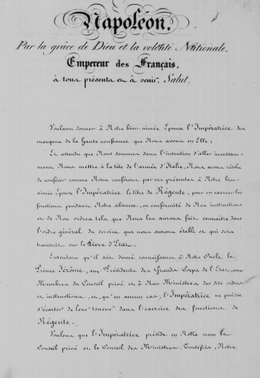 Napoléon,
Par la grâce de Dieu et la volonté Nationale,
Empereur des Français,
à tous présents et à venir, Salut.
Voulant donner à Notre bien-aimée Épouse l'Impératrice des
marques de la haute confiance que Nous avons en Elle;
Et attendu que Nous sommes dans l'intention d'aller incessam-
ment Nous mettre à la tête de l'armée d'Italie, Nous avons résolu
de conférer comme Nous conférons par ces présentes à Notre bien
aimée Épouse l'Impératrice, le titre de Régente, pour en exercer les
fonctions pendant Notre absence, en conformité de Nos instructions
et de Nos ordres tels que Nous les aurons fait connaître dans
l'ordre général du service que Nous aurons établi et qui sera
transcrit sur le Livre d'État.
Entendons qu'il soit donné connaissance à Notre Oncle le
Prince Jérôme, aux Présidents des Grands Corps de l'État, aux
Membres du Conseil privé et à Nos Ministres des dits ordres
et instructions, et qu'en aucun cas, l'Impératrice ne puisse
s'écarter de leur teneur dans l'exercice des fonctions de
Régente.
Voulons que l'Impératrice préside en Notre nom le
Conseil privé et le Conseil des Ministres. Toutefois, Notre